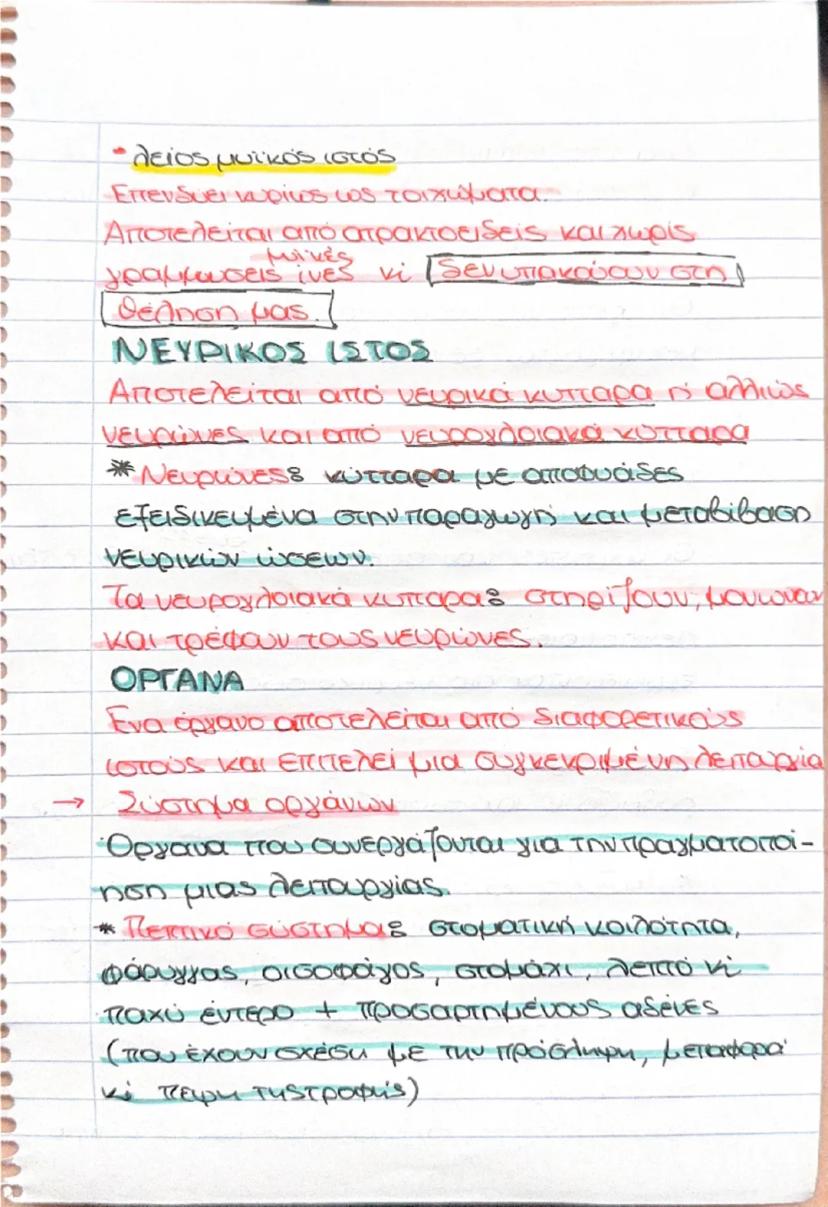 • λείος μυϊκός ιστός
Επενδύει κυρίως ως τοιχώματα.
Αποτελείται από ατρακτοειδείς και χωρίς
μυϊκές
γραμμώσεις ίνες κι δεν υπακούουν στη
θέληση μας.
ΝΕΥΡΙΚΟΣ ΙΣΤΟΣ
Αποτελείται από νευρικά κύτταρα ή αλλιώς
νευρώνες και από νευρογλοιακά κύτταρα
* Νευρώνες: κύτταρα με αποφυάδες
εξειδικευμένα στην παραγωγή και μεταβίβαση
νευρικών ώσεων.
Τα νευρογλοιακά κύτταρα: στηρίζουν, μονώνουν
και τρέφουν τους νευρώνες.
ΟΡΓΑΝΑ
Ένα όργανο αποτελείται από διαφορετικούς
ιστούς και επιτελεί μια συγκεκριμένη λειτουργία
→ Σύστημα οργάνων
Όργανα που συνεργάζονται για την πραγματοποί-
ηση μιας λειτουργίας.
* Πεπτικό σύστημα: στοματική κοιλότητα,
φάρυγγας, οισοφάγος, στομάχι, λεπτό κι
παχύ έντερο + προσαρτημένους αδένες
(που έχουν σχέση με την πρόσληψη, μεταφορά
κι πέψη της τροφής)